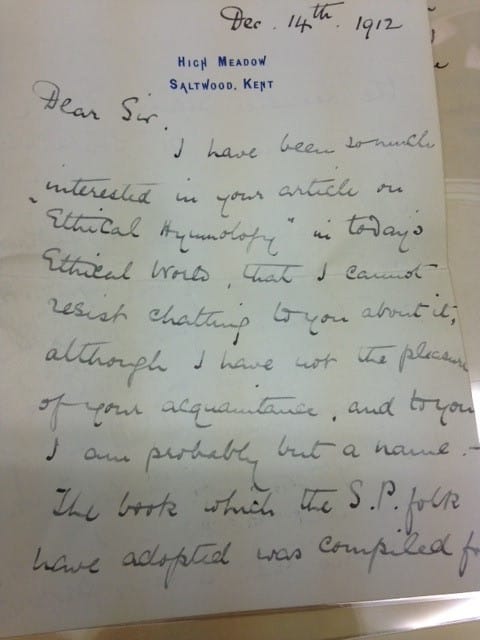 Dec. 14th. 1912
HIGH MEADOW
SALTWOOD, KENT
Dear Sir.
I have been so much
interested in your article on
"Ethical Hymnology" in today's
Ethical World, that I cannot
resist chatting to you about it,
although I have not the pleasure
of your acquaintance, and to you
I am probably but a name. -
The book which the S.P. folk
have adopted was compiled